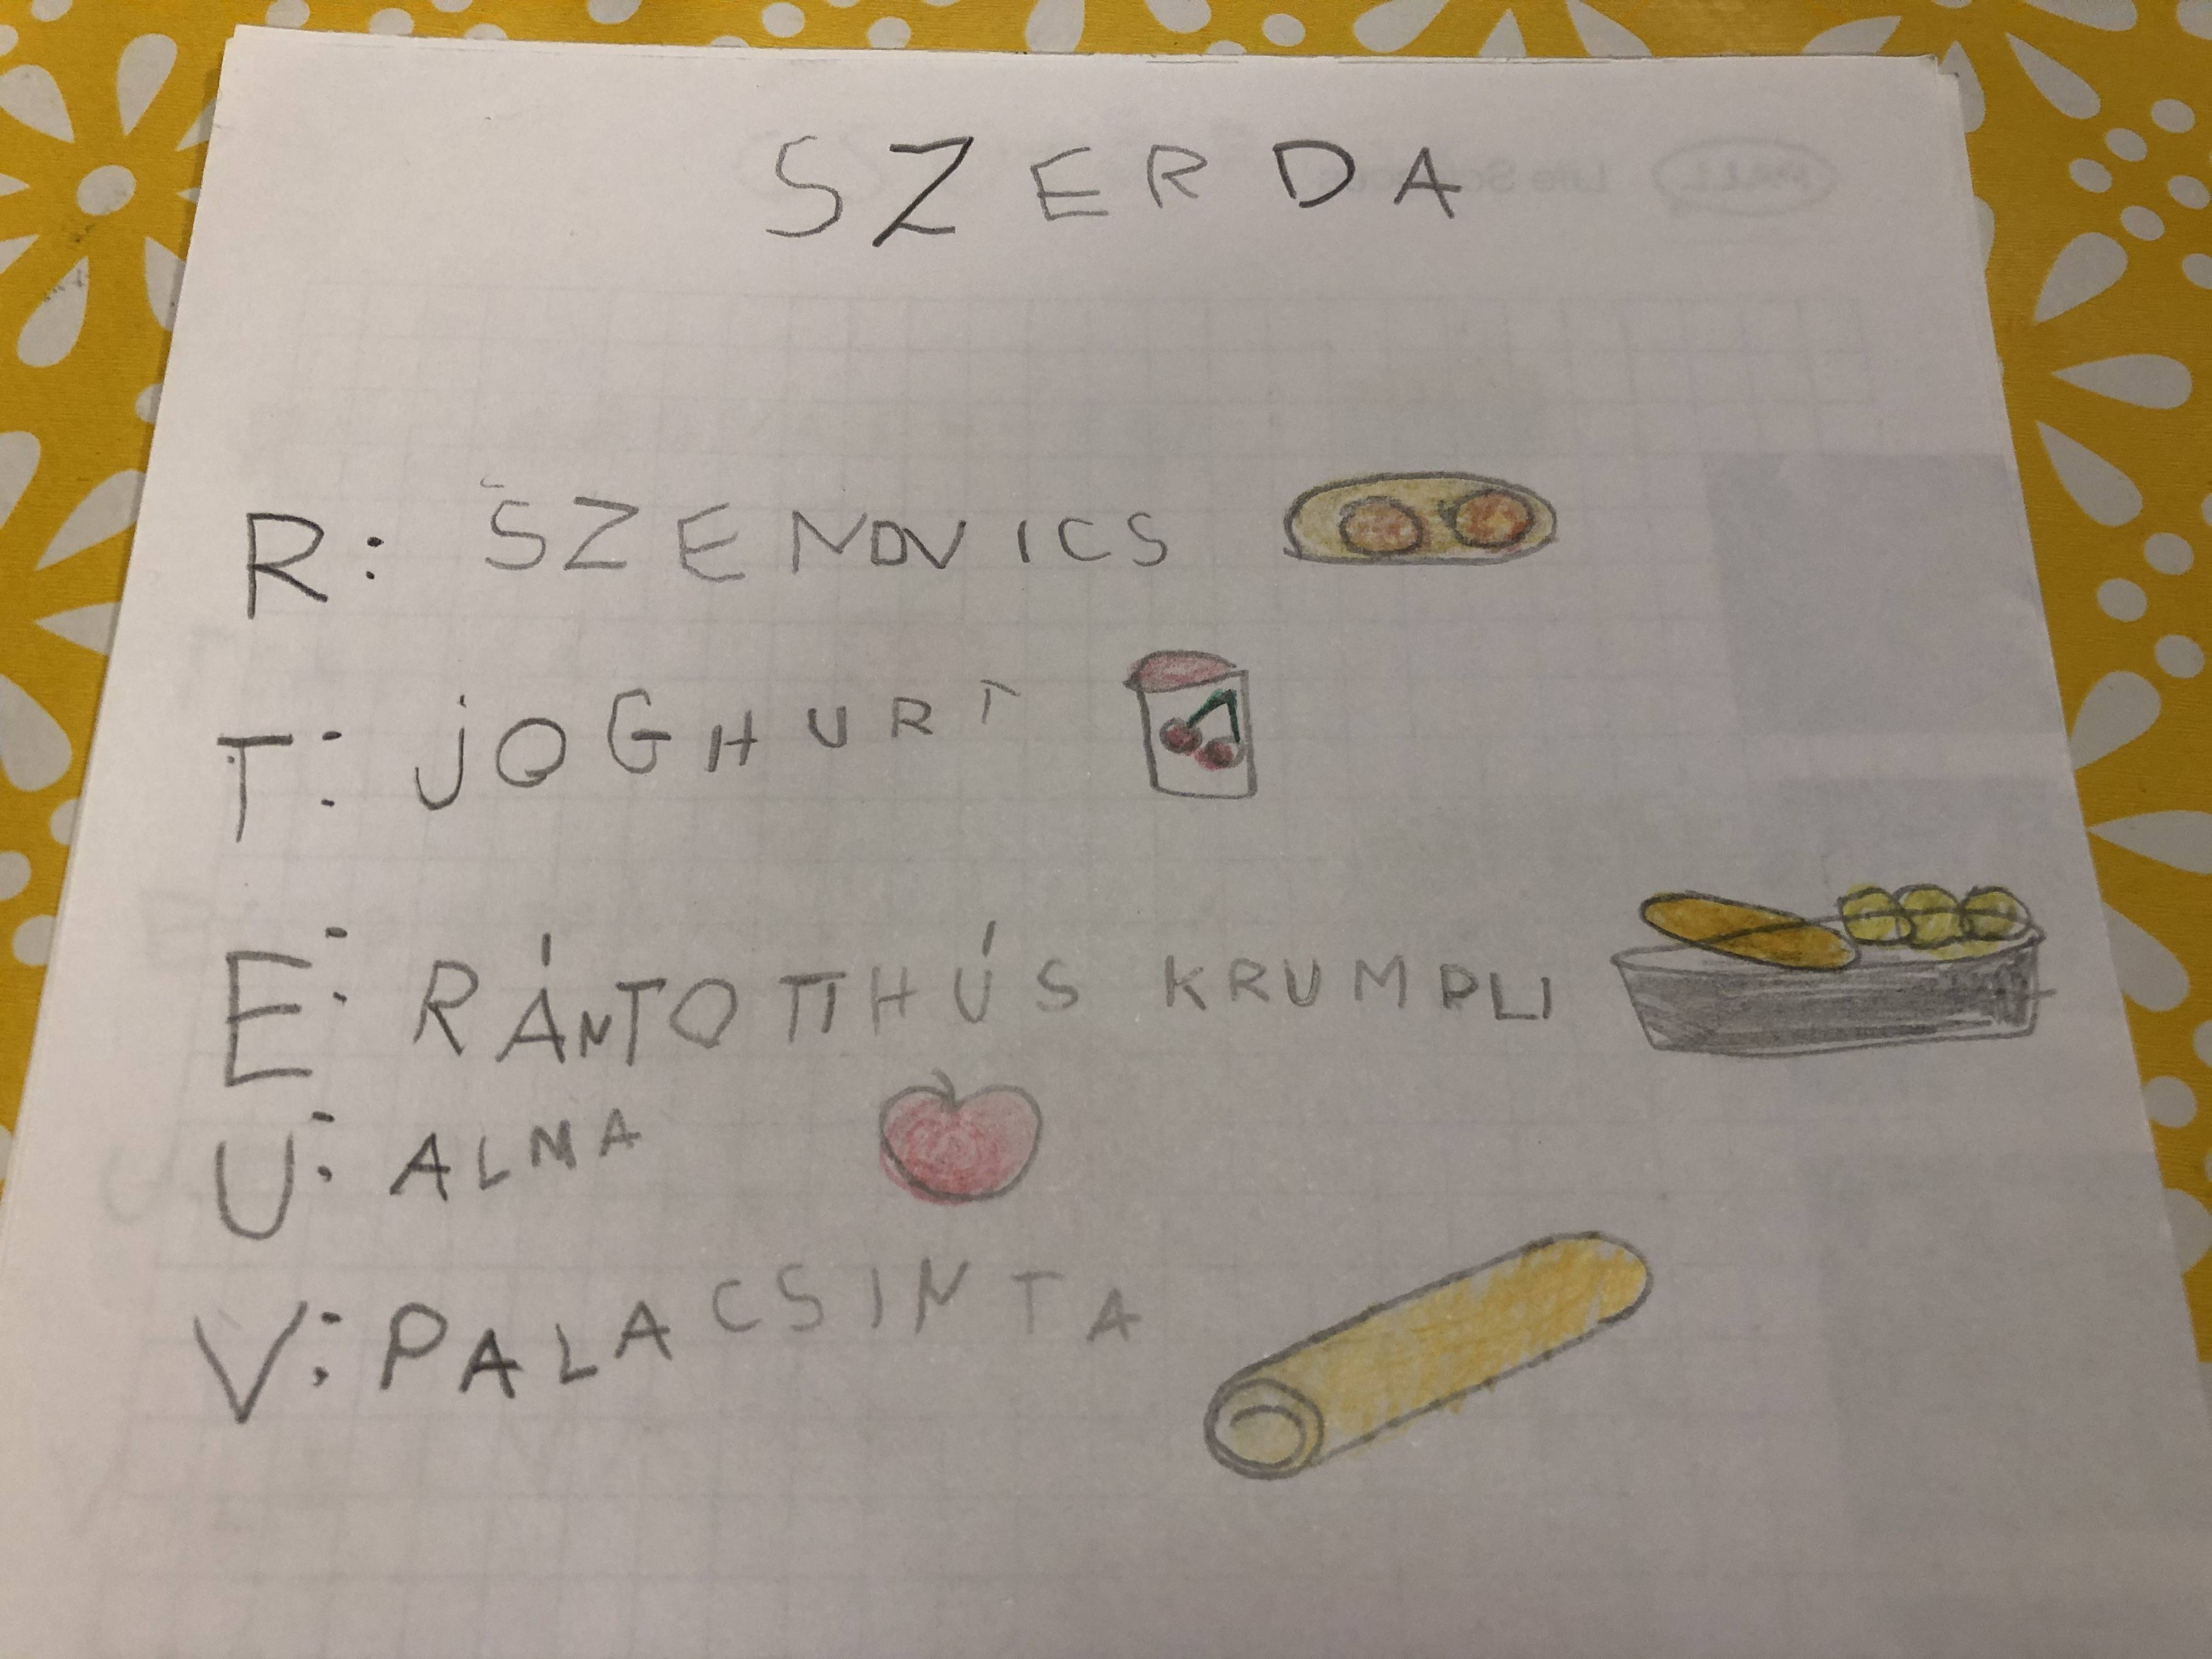 SZERDA
R: SZENDVICS
T: JOGHURT
E: RÁNTOTTHÚS KRUMPLI
U: ALMA
V: PALACSINTA